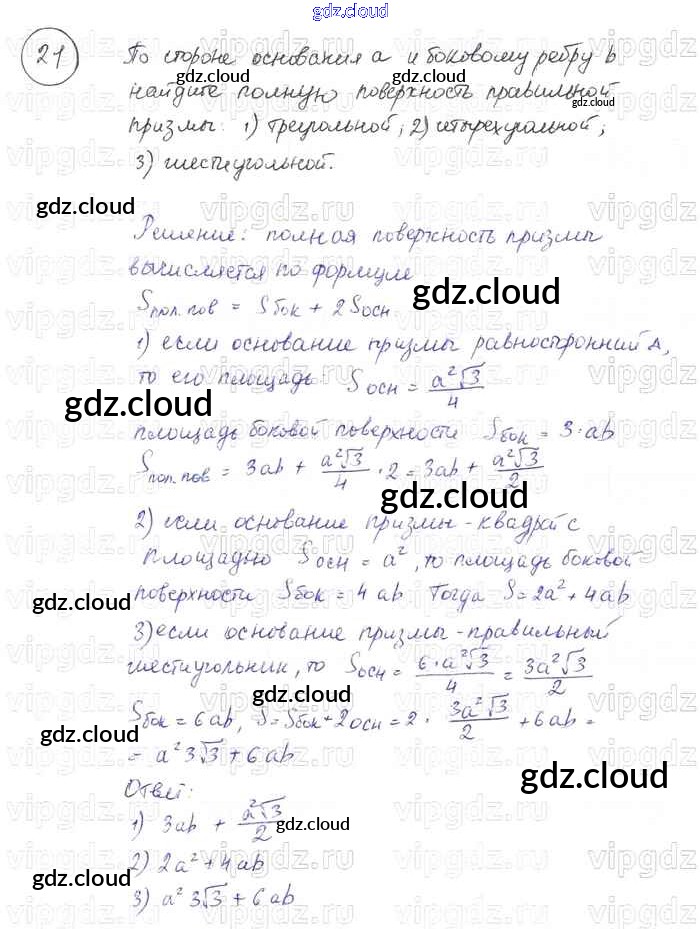 gdz.cloud
21 По стороне основания a и боковому ребру b
найдите полную поверхность правильной
призмы: 1) треугольной; 2) четырехугольной;
3) шестиугольной.
Решение: полная поверхность призмы
вычисляется по формуле
Sпол.пов = Sбок + 2Sосн
1) если основание призмы равносторонний Δ,
то его площадь Sосн = a²√3/4
площадь боковой поверхности Sбок = 3·ab
Sпол.пов = 3ab + a²√3/4 · 2 = 3ab + a²√3/2
2) если основание призмы - квадрат с
площадью Sосн = a², то площадь боковой
поверхности Sбок = 4ab Тогда S = 2a² + 4ab
3) если основание призмы - правильный
шестиугольник, то Sосн = 6·a²√3/4 = 3a²√3/2
Sбок = 6ab, S = Sбок + 2осн = 2 · 3a²√3/2 + 6ab =
= a²3√3 + 6ab
Ответ:
1) 3ab + a²√3/2
2) 2a² + 4ab
3) a²3√3 + 6ab